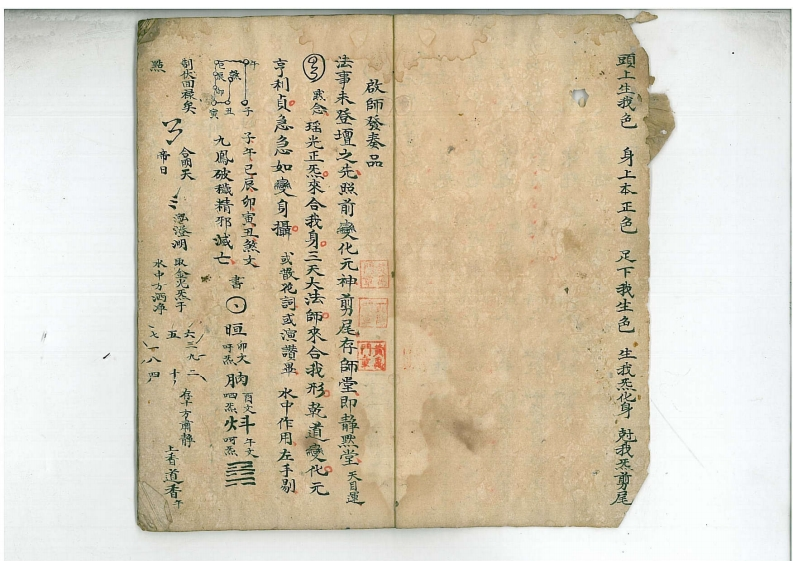 頭上生我色　身上本正色　足下我生色　生我炁化身　尅我炁剪尾
啟師發奏品
法事未登壇之先照前變化元神剪尾存師堂即靜黙堂 天目運
戝念 瑶光正炁來合我身三天大法師來合我形乾道變化元
亨利貞急急如變身攝 或散花詞或演讚畢 水中作用左手剔
午 煞
子 丑 寅 卯
子午巳辰卯寅丑煞文
九鳳破穢精邪滅亡 書 晅 卯文 呼炁 朒 酉文 呬炁 炓 午文 呵炁
制伏回禄矣 合雨天 澄湖 取金光炁于 六三九二 存十方肅靜 上香道香 午
㸃 帝日 水中方洒淨 五十 七一八四